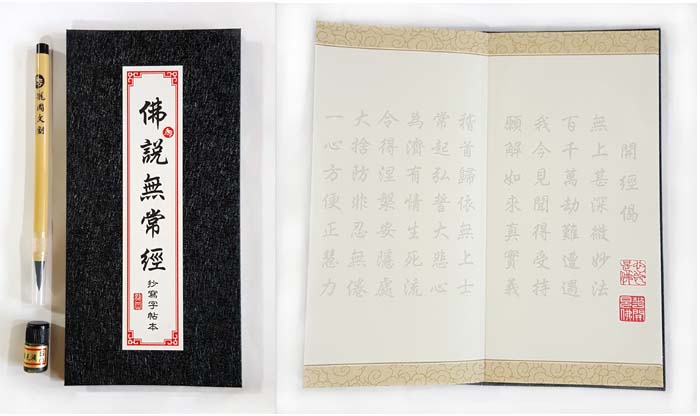 文創
佛說無常經
抄寫字帖本
開經偈
無上甚深微妙法
百千萬劫難遭遇
我今見聞得受持
願解如來真實義
稽首歸依無上士
常起弘誓大悲心
為濟有情生死流
令得涅槃安隱處
大捨防非忍無倦
一心方便正慧力